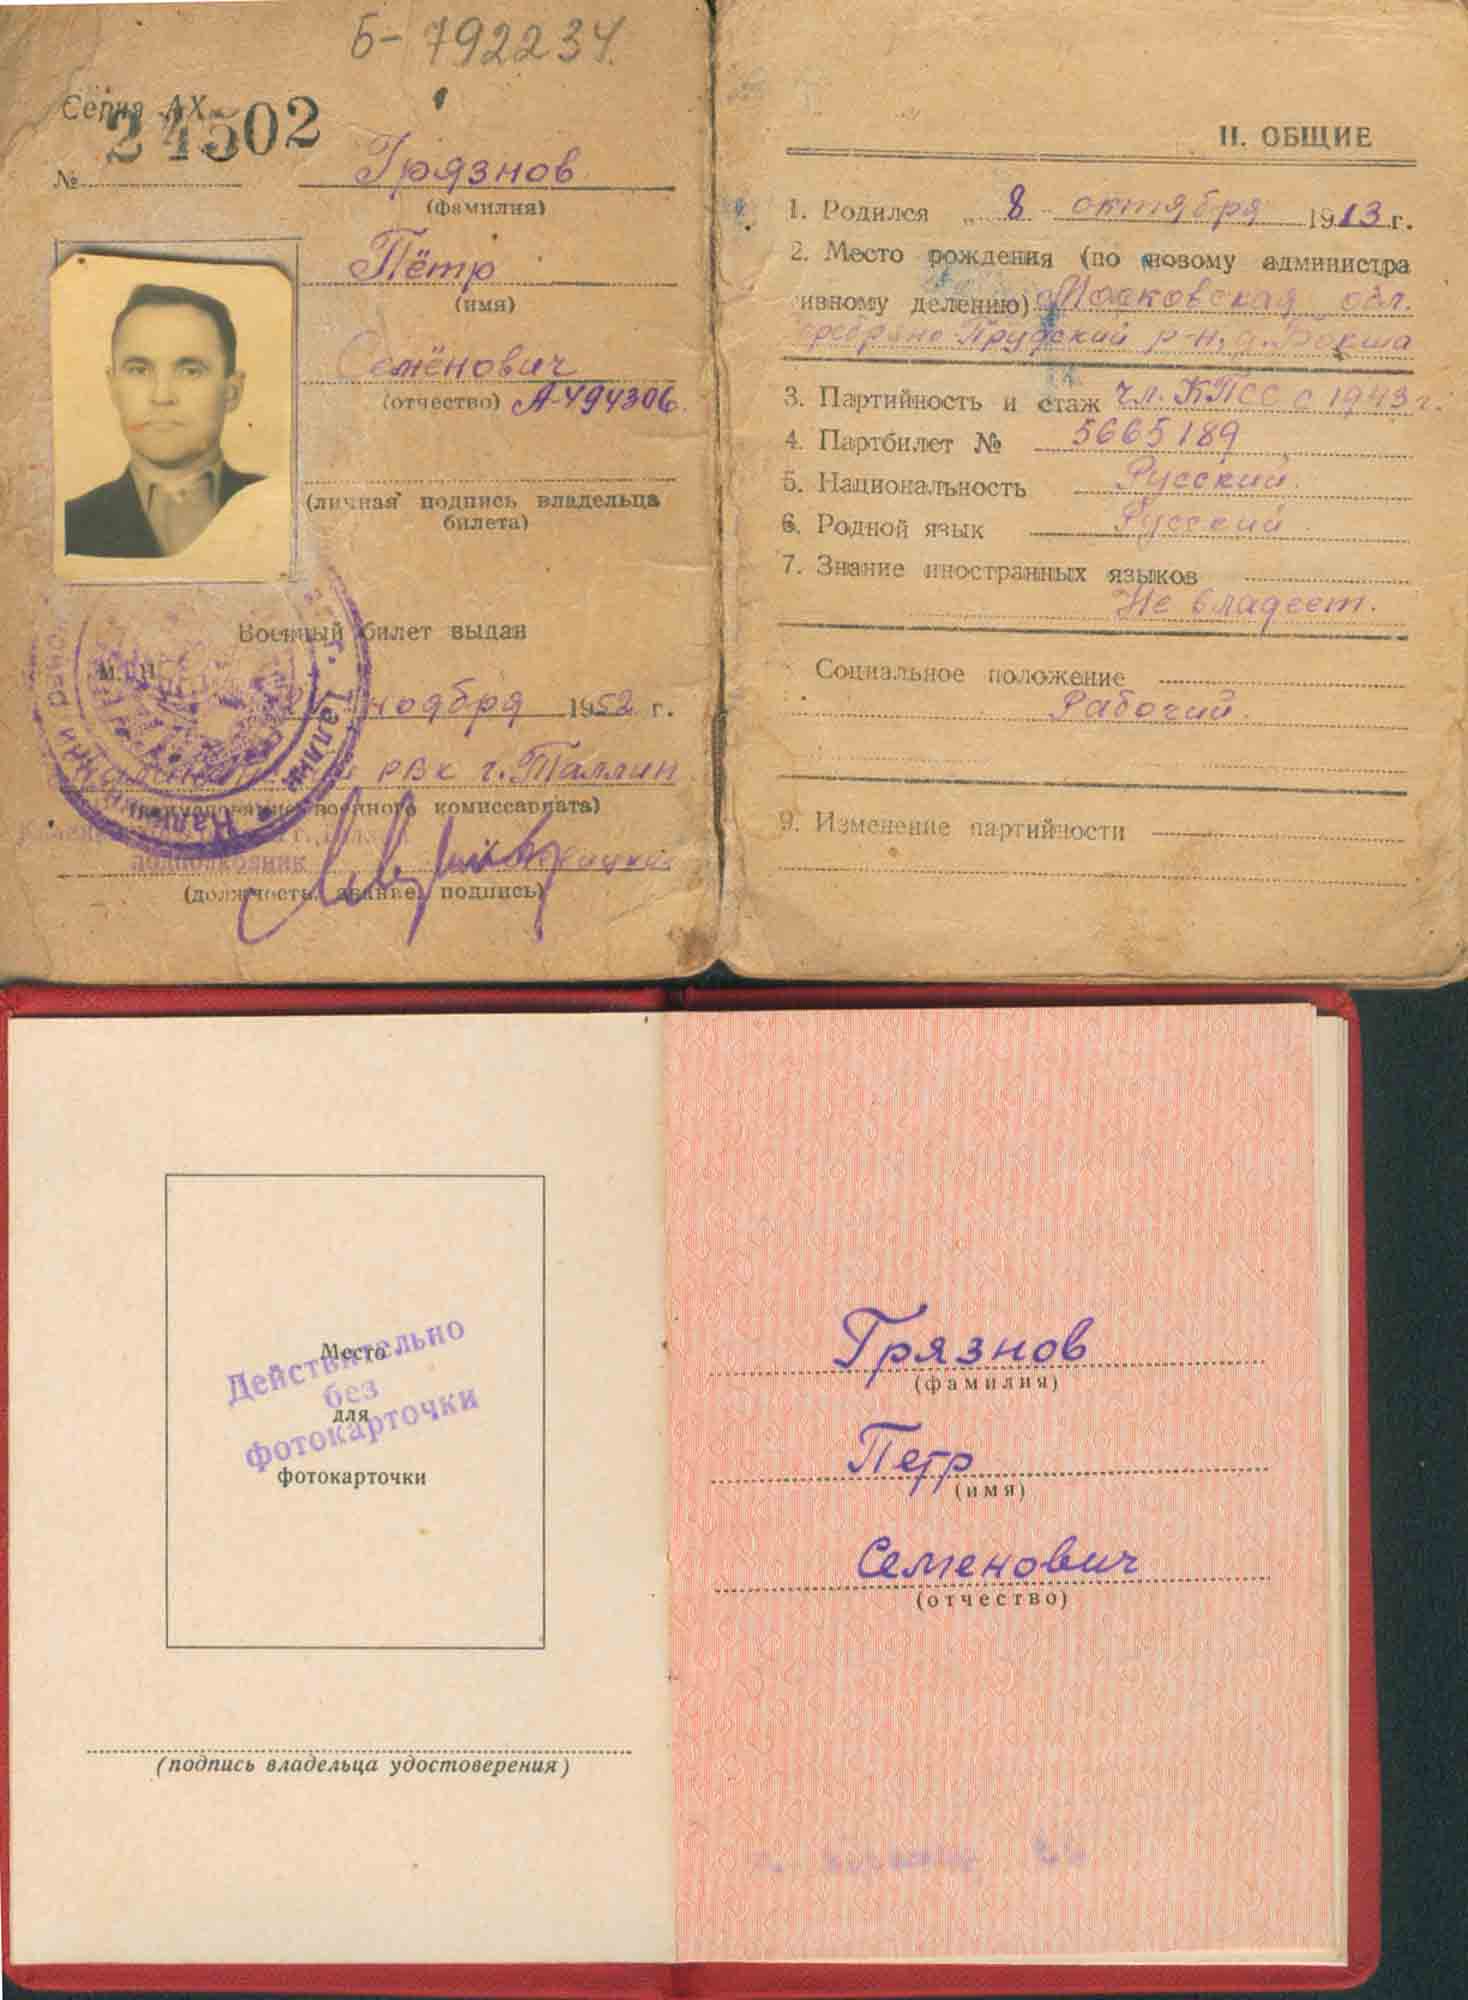 Б-792234.
Серия АХ
24502
№
Грязнов
(фамилия)
Пётр
(имя)
Семёнович
(отчество) А-494306.
(личная подпись владельца
билета)
Военный билет выдан
М.П.
ноября 1952 г.
РВК г. Таллин
(наименование военного комиссариата)
подполковник
(должность, звание, подпись)
II. ОБЩИЕ
1. Родился „ 8 - октября 1913 г.
2. Место рождения (по новому администра
ивному делению) Московская обл.
еребряно-Прудский р-н, д.
3. Партийность и стаж Чл. КПСС с 1943 г.
4. Партбилет № 5665189
5. Национальность Русский.
6. Родной язык Русский.
7. Знание иностранных языков
Не владеет.
Социальное положение
Рабочий.
9. Изменение партийности
Место
для
фотокарточки
Действительно
без
фотокарточки
(подпись владельца удостоверения)
Грязнов
(фамилия)
Петр
(имя)
Семенович
(отчество)